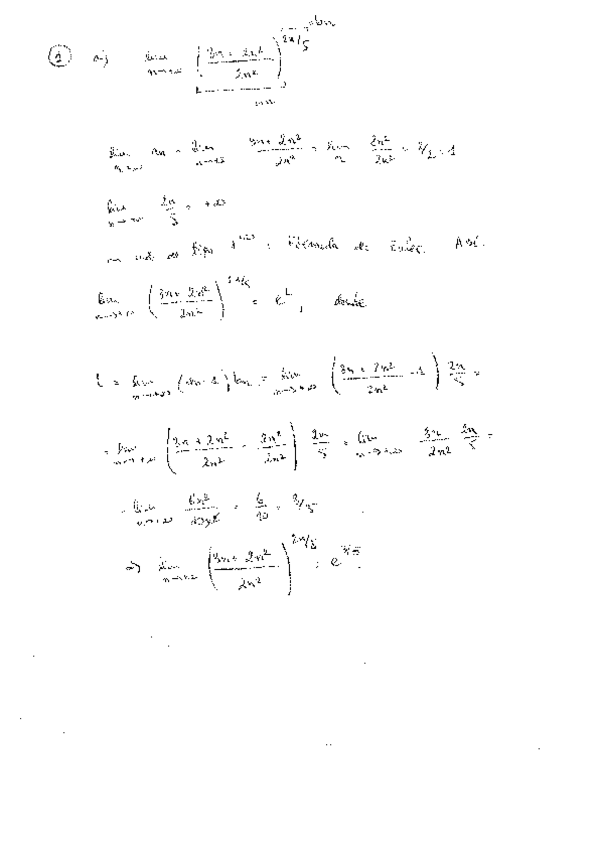 1 a) lim n→+∞ ((3n + 2n²)/2n²)^(2n/5) = bn
an
lim n→+∞ an = lim n→+∞ (3n + 2n²)/2n² = lim n 2n²/2n² = 2/2 = 1
lim n→+∞ 2n/5 = +∞
tipo 1^(+∞) : Fórmula de Euler. Así:
lim n→+∞ ((3n + 2n²)/2n²)^(2n/5) = e^L, donde
L = lim n→+∞ (an - 1) bn = lim n→+∞ ((3n + 2n²)/2n² - 1) 2n/5 =
= lim n→+∞ ((3n + 2n²)/2n² - 2n²/2n²) 2n/5 = lim n→+∞ 3n/2n² 2n/5 =
= lim n→+∞ 6n²/10n² = 6/10 = 3/5
⇒) lim n→+∞ ((3n + 2n²)/2n²)^(2n/5) = e^(3/5)